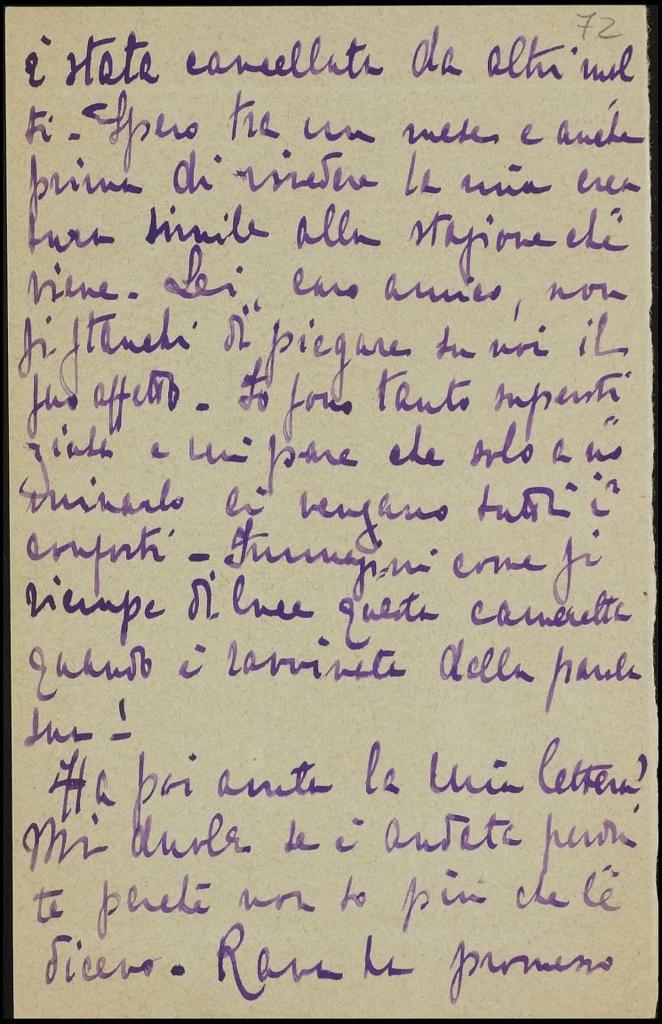 72
è stata cancellata da altri mol
ti - Spero tra un mese e anche
prima di rivedere la mia crea
tura simile alla stagione che
viene. Lei, caro amico, non
si stanchi di piegare su noi il
suo affetto - Io sono tanto supersti
ziosa e mi pare che solo a no
minarlo ci vengano tutti i
conforti - Immagini come si
riempe di luce questa cameretta
quando è ravvivata della parola
sua!
Ha poi avuta la mia lettera?
Mi duole se è andata perdu
ta perché non so più che le
dicevo. Rava ha promesso